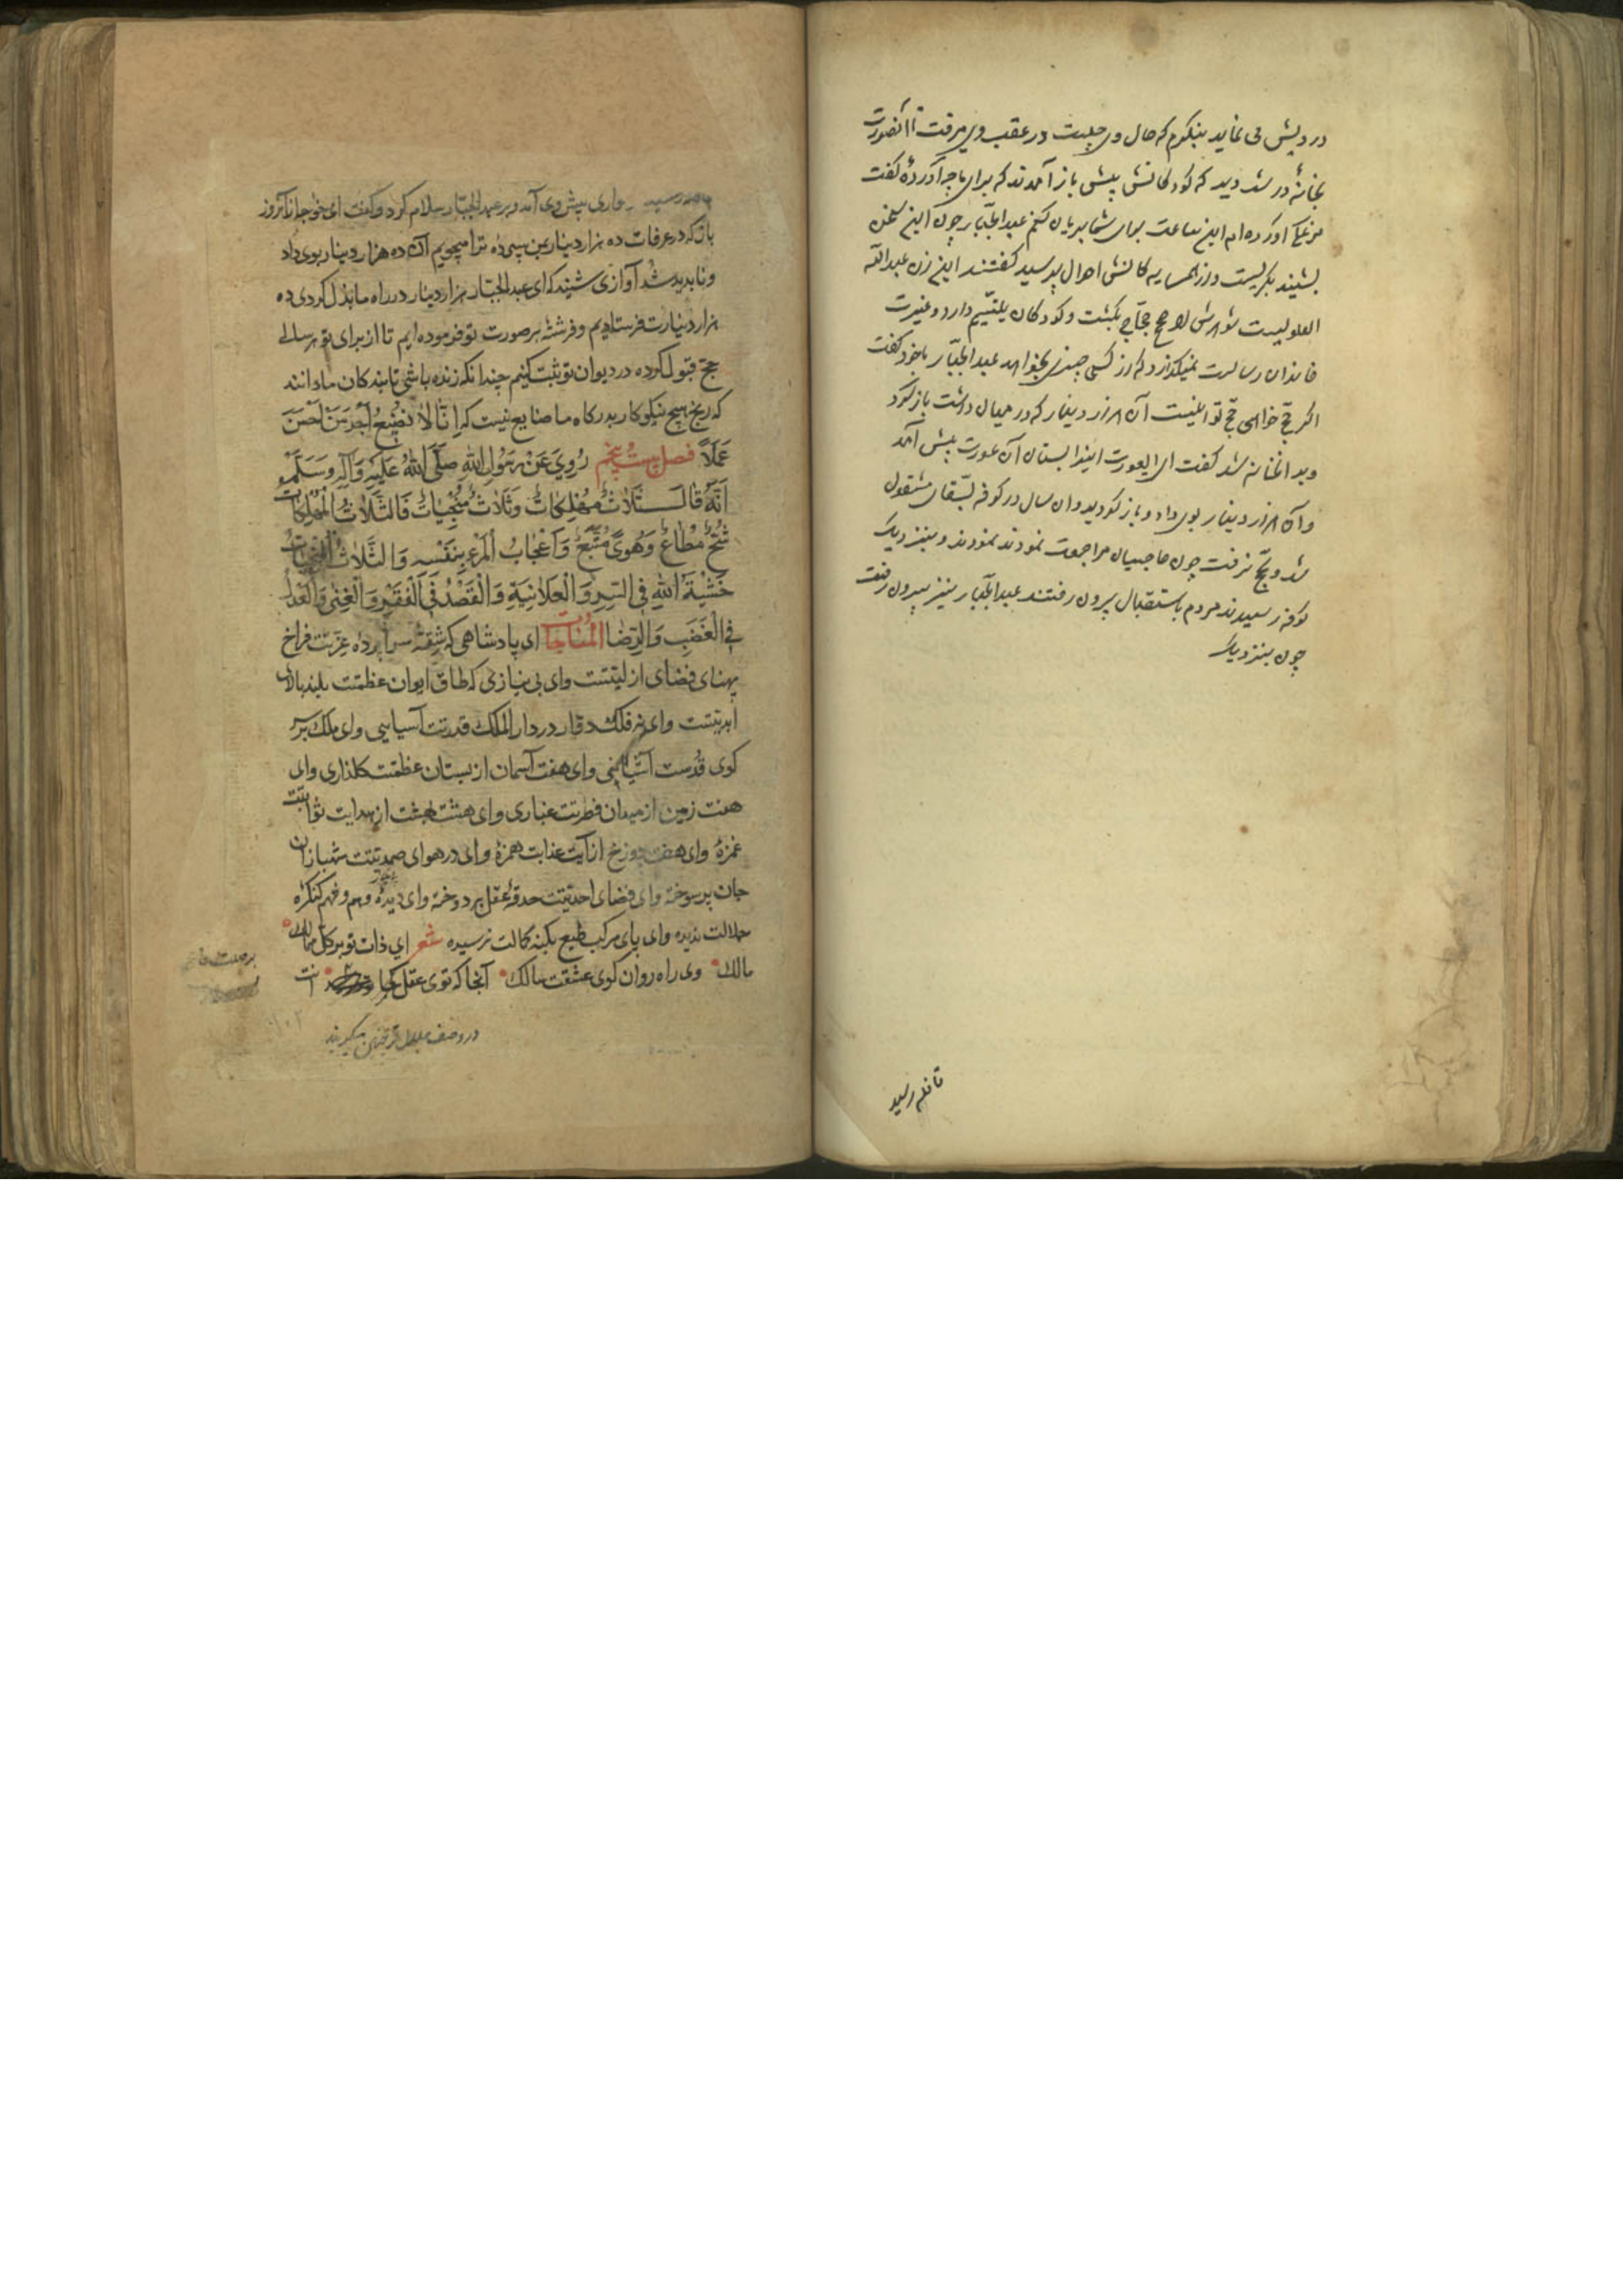 درویش می نماید بنگرم که حال وی چیست در عقب وی میرفت تا آنعورت
بخانهٔ در شد دید که کودکانش پیش باز آمدند که برای ما چه آوردهٔ گفت
مرغکی آورده ام این ساعت برای شما بریان کنم عبدالجبّار چون این سخن
بشنید بگریست و از همسایه کانش احوال پرسید گفتند این زن عبدالله
العلویست شوهرش را حجّاج بکشت و کودکان یتیم دارد و غیرت
خاندان رسالت نمیگذارد که از کسی چیزی بخواهد عبدالجبّار با خود گفت
اگر حج خواهی حج تو اینست آن هزار دینار که در میان داشت باز کرد
و بدانخانه شد گفت ای عورت اینرا بستان آن عورت پیش آمد
و آن هزار دینار بوی داد و باز گردید و آن سال در کوفه بسقای مشغول
شد و بحج نرفت چون حاجیان مراجعت نمودند و بنزدیک
کوفه رسیدند مردم باستقبال بیرون رفتند عبدالجبّار نیز بیرون رفت
چون بنزدیک
قافله رسید
رسید سواری پیش وی آمد و بر عبدالجبّار سلام کرد و گفت ای خواجه از آنروز
باز که در عرفات ده هزار دینار بمن سپردهٔ ترا میجویم آن ده هزار دینار بوی داد
و ناپدید شد آوازی شنید که ای عبدالجبّار هزار دینار در راه ما بذل کردی ده
هزار دینارت فرستادیم و فرشتهٔ بر صورت تو فرموده ایم تا از برای تو هر سالی
حج قبول کرده در دیوان تو ثبت کنیم چندانکه زنده باشی تا بندکان ما دانند
که رنج هیچ نیکوکار بدرکاه ما ضایع نیست که اِنَّا لَا نُضِیعُ اَجْرَ مَنْ اَحْسَنَ
عَمَلاً فصل بیست و پنجم رُوِیَ عَنْ رَسُولِ اللهِ صَلَّی اللهُ عَلَیْهِ وَآلِهِ وَسَلَّمَ
اَنَّهُ قَالَ ثَلَاثٌ مُهْلِکَاتٌ وَثَلَاثٌ مُنْجِیَاتٌ فَالثَّلَاثُ الْمُهْلِکَاتُ
شُحٌّ مُطَاعٌ وَهَویً مُتَّبَعٌ وَاَعْجَابُ الْمَرْءِ بِنَفْسِهِ وَالثَّلَاثُ الْمُنْجِیَاتُ
خَشْیَةُ اللهِ فِی السِّرِ وَالْعَلَانِیَةِ وَالْقَصْدُ فِی الْفَقْرِ وَالْغِنَی وَالْعَدْلُ
فِی الْغَضَبِ وَالرِّضَا المُنَاجَات ای پادشاهی که شقهٔ سراپردهٔ عزتت فراخ
پهنای فضای ازلیتست و ای بی نیازی که طاق ایوان عظمتت بلند بالای
ابدیتست و ای نه فلک دوار در دار الملک قدرتت آسیابی و ای ملک بر سر
کوی قدست و ای هفت آسمان از بستان عظمتت کلذاری و ای
هفت زمین از میدان فطرتت غباری و ای هشت بهشت از هدایت ثوابتت
غمزهٔ و ای هفت دوزخ از آیت عذابت همزهٔ و ای در هوای صمدیتت شهبازان
جان پر سوخته و ای فضای احدیتت حدقهٔ عقل بر دوخته و ای دیدهٔ وهم و فهم کنکره
جلالت ندیده و ای پای مرکب طبع بکنه کمالت نرسیده شعر ای ذات تو بر کل ممالک
مالک وی راه روان کوی عشقت سالک آنجا که توی عقل کجا
در وصف